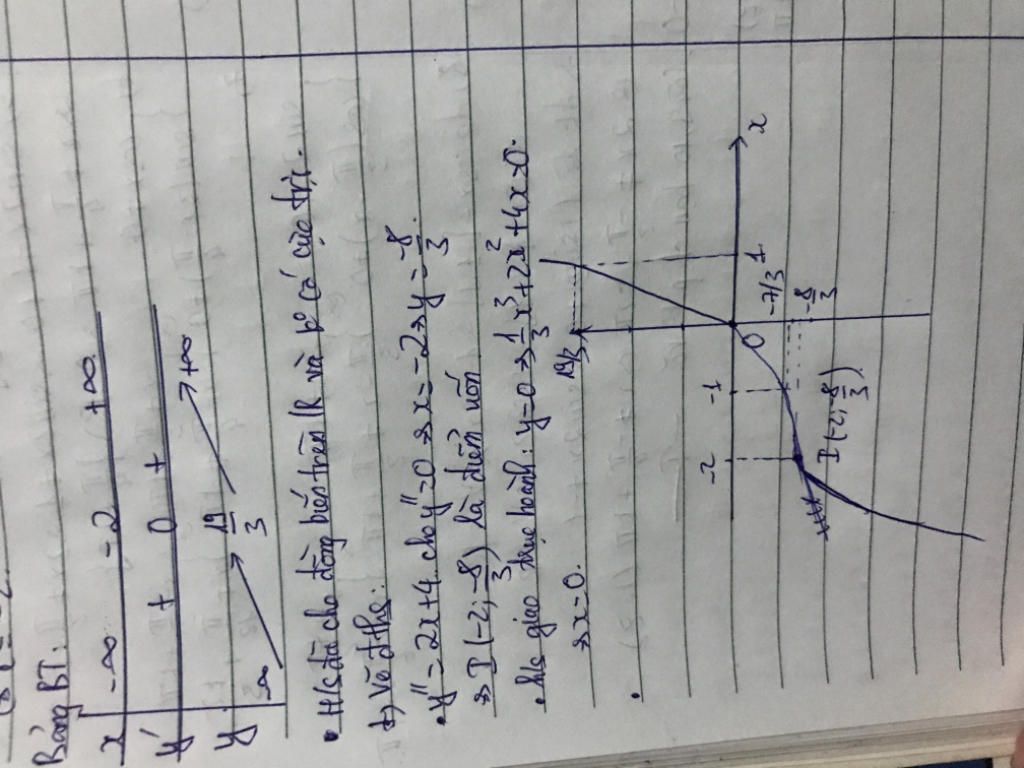 Bảng BT:
x -∞ -2 +∞
y' + 0 +
y -∞ 19/3 +∞
• H/s đã cho đồng biến trên R và k° có cực trị.
t) Vẽ đths:
• y'' = 2x+4. cho y''=0 => x=-2 => y = -8/3
=> I(-2; -8/3) là điểm uốn
• h/s giao trục hoành: y=0 => 1/3 x³+2x²+4x=0.
=> x=0.
19/3
1
x
O
-1
-2
-7/3
-8/3
I(-2; -8/3)